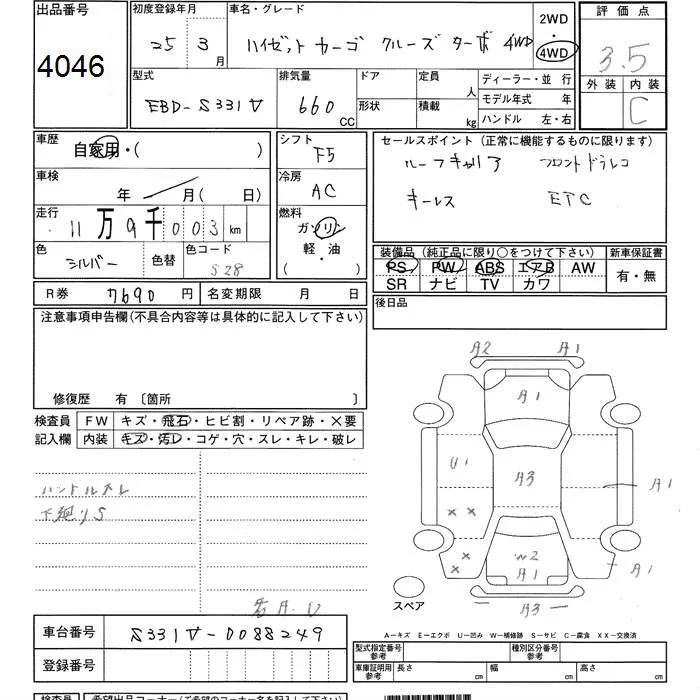 出品番号
4046
初度登録年月日
25 3月
車名・グレード
ハイゼット カーゴ クルーズ ターボ 4WD
2WD
4WD
評価点
3.5
外装 内装
C
型式
EBD-S331V
排気量
660 CC
ドア
形状
定員 人
積載 kg
ディーラー・並 行
モデル年式 年
ハンドル 左・右
車歴
自家用・( )
シフト
F5
セールスポイント (正常に機能するものに限ります)
ルーフキャリア フロントドラレコ
キーレス ETC
車検
年 月 ( 日)
冷房
AC
走行
11万9千003km
燃料
ガソリン
軽・油
( )
色
シルバー
色替
色コード
S28
装備品 (純正品に限り○をつけて下さい)
PS PW ABS エアB AW
SR ナビ TV カワ
新車保証書
有・無
R券 7690円
名変期限 月 日
後日品
注意事項申告欄(不具合内容等は具体的に記入して下さい)
修復歴 有 〔箇所 〕
検査員
記入欄
FW キズ・飛石・ヒビ割・リペア跡・×要
内装 キズ・汚レ・コゲ・穴・スレ・キレ・破レ
ハンドルスレ
下廻りS
A2 A1
A1
U1
A3
A1
× ×
× ×
W2
A1
A1
A3
スペア
車台番号
S331V-0088249
登録番号
A…キズ E…エクボ U…凹み W…補修跡 S…サビ C…腐食 XX…交換済
型式指定番号
参考
種別区分番号
参考
車庫証明用
参考
長さ cm
幅 cm
高さ cm
検査員
希望出品コーナー(ご希望のコーナー名を記入して下さい)